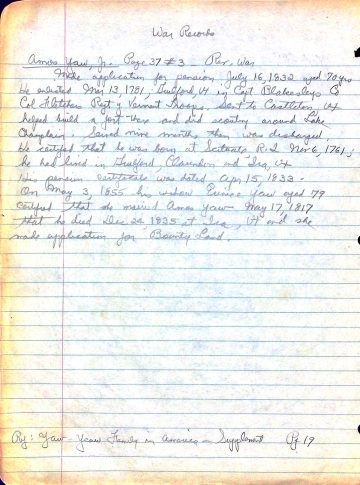 War Records
Amos Yaw, Jr. Page 37 #3 Rev. War
Make application for pension July 16, 1832 aged 70 yrs
He enlisted Mar 13, 1781, Guilford, Vt in Capt Blakesleys Co
Col Fletcher Regt of Vermont Troops. Sent to Castleton, Vt
helped build a fort there and did scouting around Lake
Champlain. Served nine months then was discharged.
He certified that he was born at Scituate R.I. Nov 6, 1761;
he had lived in Guilford, Clarendon and Ira, Vt
His pension certificate was dated Apr 15, 1833.
On May 3, 1855 his widow Eunice Yaw aged 79
certified that she married Amos Yaw May 17, 1817
that he died Dec 24 1835 at Ira, Vt and she
made application for Bounty Land.
Ref: Yaw - Yeaw Family in America - Supplement Pg 19